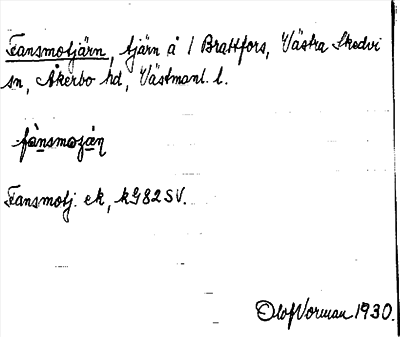 Fansmotjärn, tjärn å / Brattfors, Västra Skedvi
sn, Åkerbo hd, Västmanl. l.
fànsmoȷä̀n
Fansmotj. ek, kG82SV.
Olof Norman 1930.